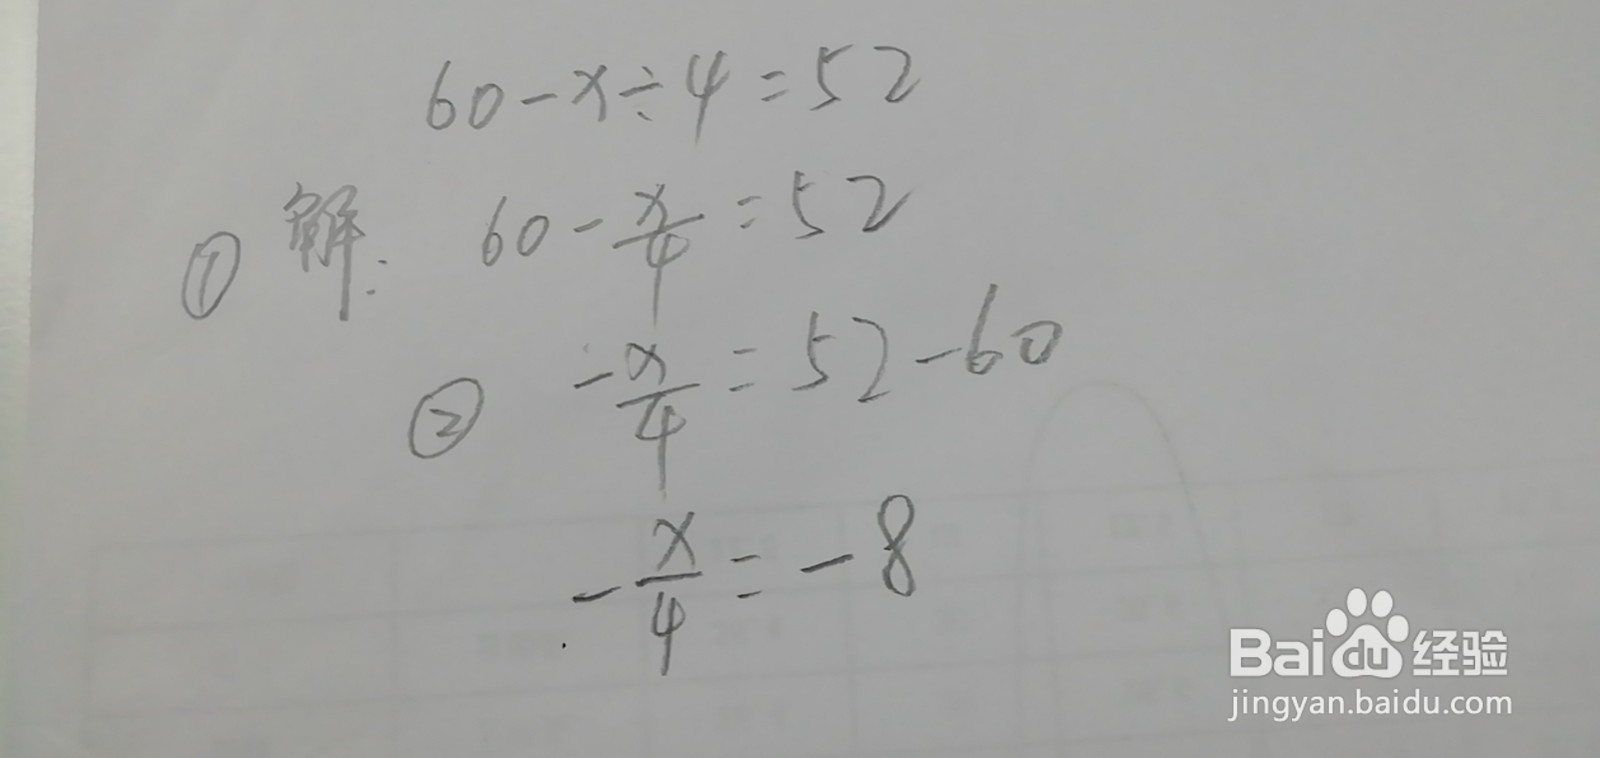 60-x÷4=52
① 解: 60-x/4=52
② -x/4=52-60
-x/4=-8
Baidu 经验
jingyan.baidu.com